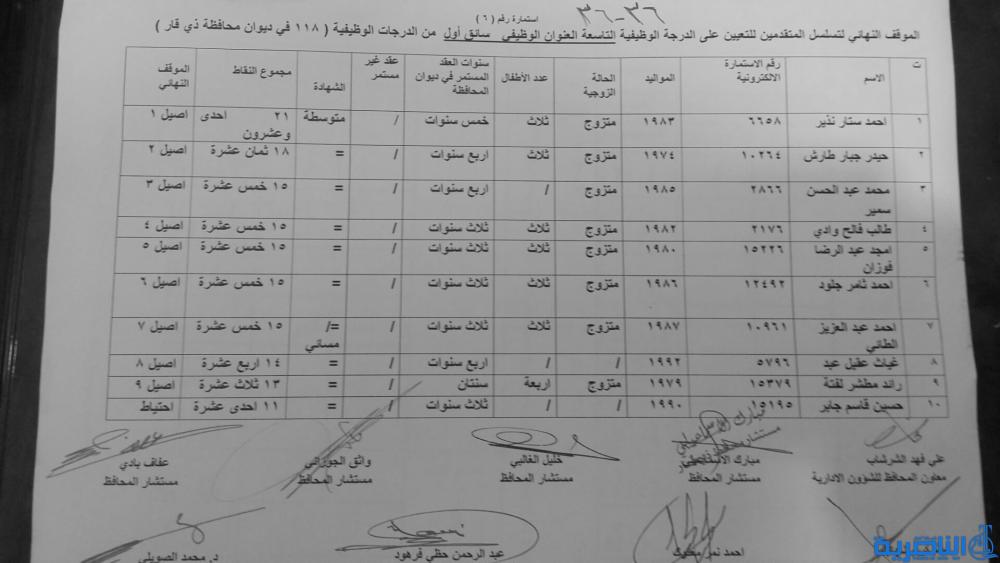 ٣٦-٣٦
استمارة رقم ( ٦ )
الموقف النهائي لتسلسل المتقدمين للتعيين على الدرجة الوظيفية التاسعة العنوان الوظيفي سائق أول من الدرجات الوظيفية ( ١١٨ في ديوان محافظة ذي قار )
ت الاسم رقم الاستمارة الالكترونية المواليد الحالة الزوجية عدد الأطفال سنوات العقد المستمر في ديوان المحافظة عقد غير مستمر الشهادة مجموع النقاط الموقف النهائي
١ احمد ستار نذير ٦٦٥٨ ١٩٨٣ متزوج ثلاث خمس سنوات / متوسطة ٢١ احدى وعشرون اصيل ١
٢ حيدر جبار طارش ١٠٢٦٤ ١٩٧٤ متزوج ثلاث اربع سنوات / = ١٨ ثمان عشرة اصيل ٢
٣ محمد عبد الحسن سمير ٢٨٦٦ ١٩٨٥ متزوج / اربع سنوات / = ١٥ خمس عشرة اصيل ٣
٤ طالب فالح وادي ٢١٧٦ ١٩٨٢ متزوج ثلاث ثلاث سنوات / = ١٥ خمس عشرة اصيل ٤
٥ امجد عبد الرضا فوزان ١٥٢٢٦ ١٩٨٠ متزوج ثلاث ثلاث سنوات / = ١٥ خمس عشرة اصيل ٥
٦ احمد ثامر جلود ١٢٤٩٢ ١٩٨٦ متزوج ثلاث ثلاث سنوات / = ١٥ خمس عشرة اصيل ٦
٧ احمد عبد العزيز الطائي ١٠٩٦١ ١٩٨٧ متزوج ثلاث ثلاث سنوات / =/ مسائي ١٥ خمس عشرة اصيل ٧
٨ غياث عقيل عبد ٥٧٩٦ ١٩٩٢ / / اربع سنوات / = ١٤ اربع عشرة اصيل ٨
٩ رائد مطشر لفتة ١٥٣٧٩ ١٩٧٩ متزوج اربعة سنتان / = ١٣ ثلاث عشرة اصيل ٩
١٠ حسين قاسم جابر ١٥١٩٥ ١٩٩٠ / / ثلاث سنوات / = ١١ احدى عشرة احتياط
علي فهد الشرشاب مبارك خليل الغالبي واثق الجوراني عفاف بادي
معاون المحافظ للشؤون الادارية مستشار المحافظ مستشار المحافظ مستشار المحافظ مستشار المحافظ
احمد عبد الرحمن حظي فرهود د. محمد الصويلي
الناصرية